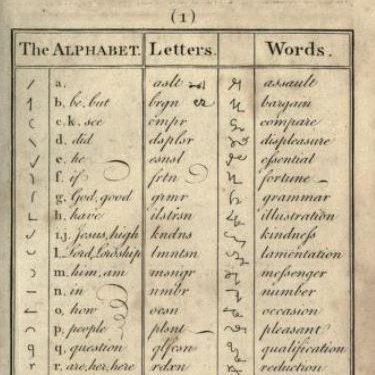 (1)
The ALPHABET. Letters. Words.
a. aslt assault
b. be, but brgn bargain
c. k. see cmpr compare
d. did dsplsr displeasure
e. he esnsl eſsential
f. if frtn fortune
g. God, good grmr grammar
h. have ilstrsn illustration
i.j. Jesus, high kndns kindneſs
l. Lord, lordship lmntsn lamentation
m. him, am msngr meſsenger
n. in nmbr number
o. how ocsn occasion
p. people plsnt pleasant
q. question qlfcsn qualification
r. are, her, here rdxn reduction